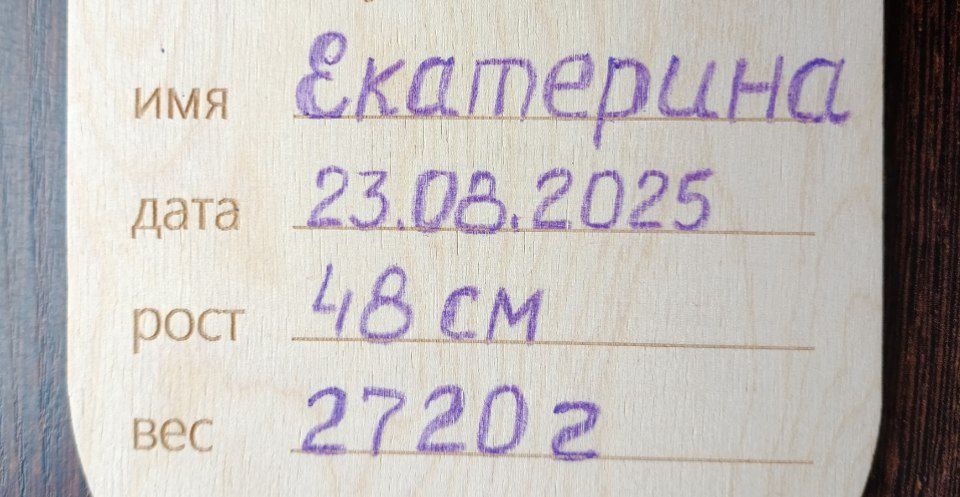 имя Екатерина
дата 23.08.2025
рост 48 см
вес 2720 г